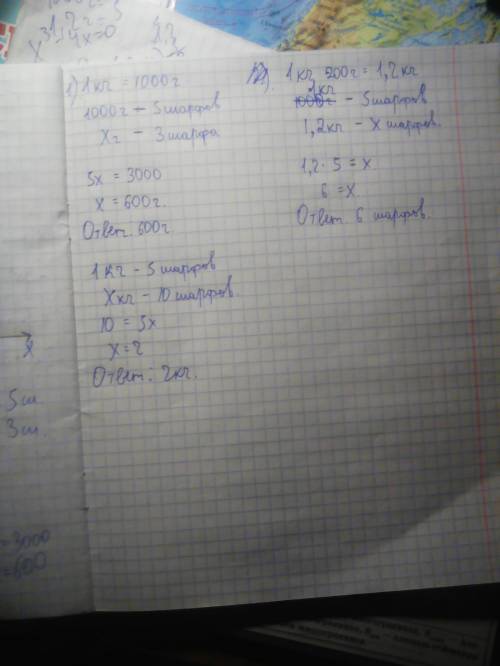 x³ - 4x = 0
1) 1кг = 1000г
1000г - 5 шарфов
Xг - 3 шарфа
5x = 3000
X = 600г.
Ответ: 600г
1 кг - 5 шарфов
Xкг - 10 шарфов.
10 = 5x
X = 2
Ответ: 2кг.
2) 1кг 200г = 1,2кг
1кг
1000г - 5 шарфов
1,2кг - X шарфов.
1,2 · 5 = X
6 = X
Ответ: 6 шарфов.
X
5ш.
3ш.
=3000
=600